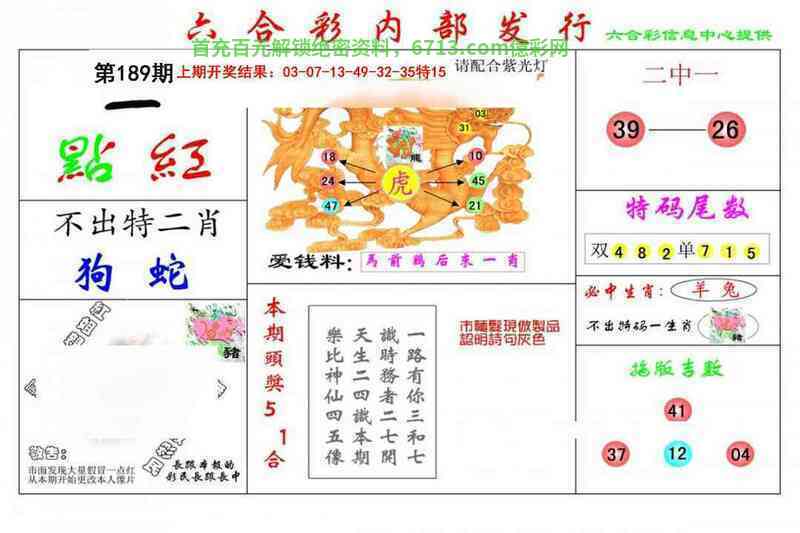 六合彩内部发行
六合彩信息中心提供
首充百元解锁绝密资料，6713.com德彩网
第189期
上期开奖结果：03-07-13-49-32-35特15
请配合紫光灯
一
點 紅
不出特二肖
狗 蛇
豬
敬告：
市面发现大量假冒一点红
从本期开始更改本人像片
長跟本报的
彩民長跟長中
03
31
龍
18
10
24
虎
45
47
21
爱钱料：
馬前鷄后末一肖
本期頭獎51合
一路有你三和七
識時務者二七開
天生二四識本期
樂比神仙四五像
二中一
39
26
特码尾数
双482单715
必中生肖：
羊 兔
不出特码一生肖
豬
41
37
12
04